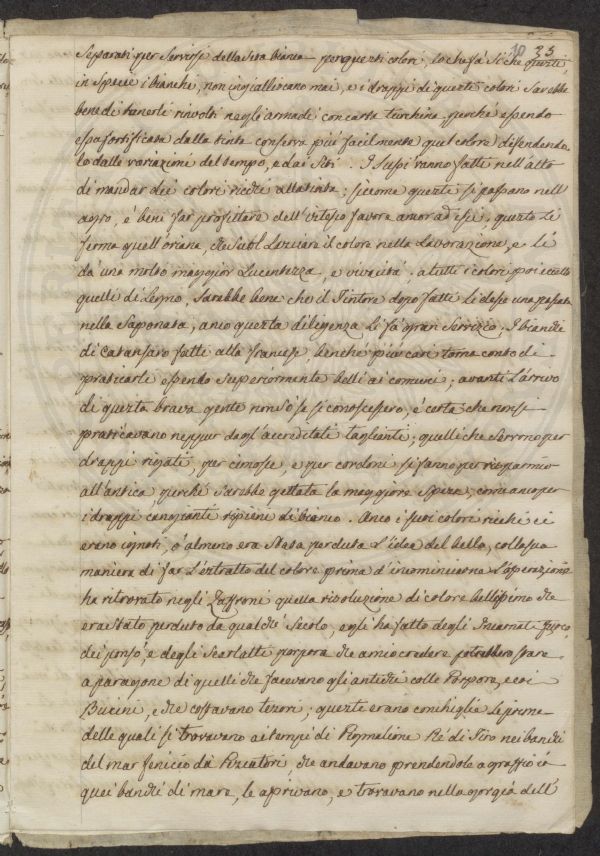 10 35
Separati per Servirsi della Seta bianca per questi colori, lo che fà si che queste,
in Specie i bianchi, non ingialliscano mai, e i drappi di questi colori Sarebbe
bene di tenerli rivolti negli armadi con carta turchina, perché essendo
essa fortificata dalla tinta conserva più facilmente quel colore difendendo-
lo dalle variazioni del tempo, e dai Siti. I Suoi vanno fatti nell'atto
di mandar dei colori ricchi alla tinta; siccome queste si passano nell'
agro, è bene far profittare dell' istesso favore ancor ad essi, questo li
ferma quell'oriana, che Suol Lasciare il colore nella Lavorazione, e li
dà una molto maggior Lucentezza, e vivacità, a tutti i colori poi eccetto
quelli di Legno, Sarebbe bene che il Tintore dopo fatti li desse una passata
nella Saponata, anco questa diligenza li fà gran Servizio. I bianchi
di fatti alla francese, benché più cari torna conto di
praticarli essendo Superiormente belli ai comuni; avanti L'arrivo
di questa brava gente non sò se si conoscessero, è certo che non si
praticavano neppur dagl'accreditati taglianti; quelli che Servono per
drappi rigati, per cimosse, e per cordoni si fanno per risparmio
all'antica perché Sarebbe gettata la maggiore Spesa, come anco per
i drappi cangianti ripieni di bianco. Anco i suoi colori ricchi ci
erano ignoti, ò almeno era Stata perduta L'idea del bello, colla sua
maniera di far L'estratto del colore prima d'incominciarne L'operazione
ha ritrovato negli Zaffroni quella risoluzione di colore bellissimo che
era Stato perduto da qualche Secolo, egli ha fatto degli Incarnati fuoco,
dei ponsò, e degli Scarlatti porpora che a mio credere potrebbero stare
a paragone di quelli che facevano gli antichi colle Porpore, e coi
Buccini, e che costavano tesori; queste erano conchiglie Le prime
delle quali si trovavano ai tempi di Pigmalione Rè di Tiro nei banchi
del mar fenicio da Pescatori, che andavano prendendole a graffio in
quei banchi di mare, le aprivano, e trovavano nella gorgia dell'